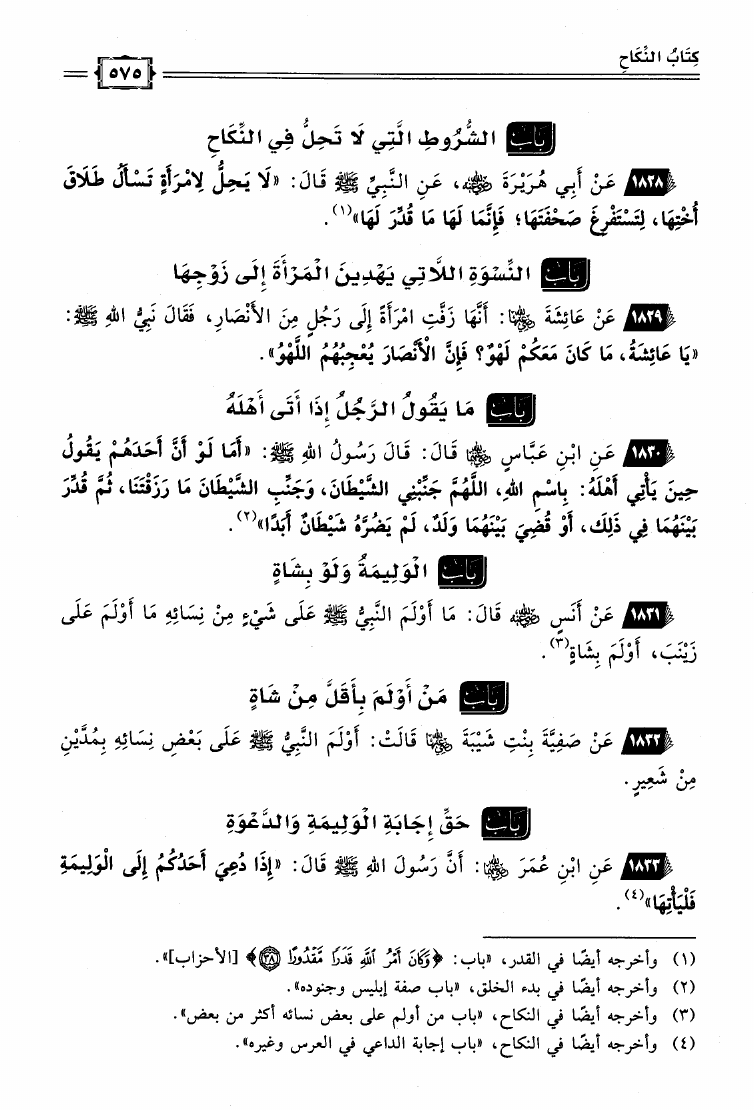 كِتَابُ النِّكَاحِ
٥٧٥
بَابُ الشُّرُوطِ الَّتِي لَا تَحِلُّ فِي النِّكَاحِ
١٨٢٨ عَنْ أَبِي هُرَيْرَةَ رضي الله عنه، عَنِ النَّبِيِّ ﷺ قَالَ: «لَا يَحِلُّ لِامْرَأَةٍ تَسْأَلُ طَلَاقَ
أُخْتِهَا، لِتَسْتَفْرِغَ صَحْفَتَهَا؛ فَإِنَّمَا لَهَا مَا قُدِّرَ لَهَا»(١).
بَابُ النِّسْوَةِ اللَّاتِي يَهْدِينَ الْمَرْأَةَ إِلَى زَوْجِهَا
١٨٢٩ عَنْ عَائِشَةَ رضي الله عنها: أَنَّهَا زَفَّتِ امْرَأَةً إِلَى رَجُلٍ مِنَ الْأَنْصَارِ، فَقَالَ نَبِيُّ اللهِ ﷺ:
«يَا عَائِشَةُ، مَا كَانَ مَعَكُمْ لَهْوٌ؟ فَإِنَّ الْأَنْصَارَ يُعْجِبُهُمُ اللَّهْوُ».
بَابُ مَا يَقُولُ الرَّجُلُ إِذَا أَتَى أَهْلَهُ
١٨٣٠ عَنِ ابْنِ عَبَّاسٍ رضي الله عنهما قَالَ: قَالَ رَسُولُ اللهِ ﷺ: «أَمَا لَوْ أَنَّ أَحَدَهُمْ يَقُولُ
حِينَ يَأْتِي أَهْلَهُ: بِاسْمِ اللهِ، اللَّهُمَّ جَنِّبْنِي الشَّيْطَانَ، وَجَنِّبِ الشَّيْطَانَ مَا رَزَقْتَنَا، ثُمَّ قُدِّرَ
بَيْنَهُمَا فِي ذَلِكَ، أَوْ قُضِيَ بَيْنَهُمَا وَلَدٌ، لَمْ يَضُرَّهُ شَيْطَانٌ أَبَدًا»(٢).
بَابُ الْوَلِيمَةُ وَلَوْ بِشَاةٍ
١٨٣١ عَنْ أَنَسٍ رضي الله عنه قَالَ: مَا أَوْلَمَ النَّبِيُّ ﷺ عَلَى شَيْءٍ مِنْ نِسَائِهِ مَا أَوْلَمَ عَلَى
زَيْنَبَ، أَوْلَمَ بِشَاةٍ(٣).
بَابُ مَنْ أَوْلَمَ بِأَقَلَّ مِنْ شَاةٍ
١٨٣٢ عَنْ صَفِيَّةَ بِنْتِ شَيْبَةَ رضي الله عنها قَالَتْ: أَوْلَمَ النَّبِيُّ ﷺ عَلَى بَعْضِ نِسَائِهِ بِمُدَّيْنِ
مِنْ شَعِيرٍ.
بَابُ حَقِّ إِجَابَةِ الْوَلِيمَةِ وَالدَّعْوَةِ
١٨٣٣ عَنِ ابْنِ عُمَرَ رضي الله عنهما: أَنَّ رَسُولَ اللهِ ﷺ قَالَ: «إِذَا دُعِيَ أَحَدُكُمْ إِلَى الْوَلِيمَةِ
فَلْيَأْتِهَا»(٤).
(١) وأخرجه أيضًا في القدر، «باب: ﴿وَكَانَ أَمْرُ اللَّهِ قَدَرًا مَقْدُورًا ٣٨﴾ [الأحزاب]».
(٢) وأخرجه أيضًا في بدء الخلق، «باب صفة إبليس وجنوده».
(٣) وأخرجه أيضًا في النكاح، «باب من أولم على بعض نسائه أكثر من بعض».
(٤) وأخرجه أيضًا في النكاح، «باب إجابة الداعي في العرس وغيره».